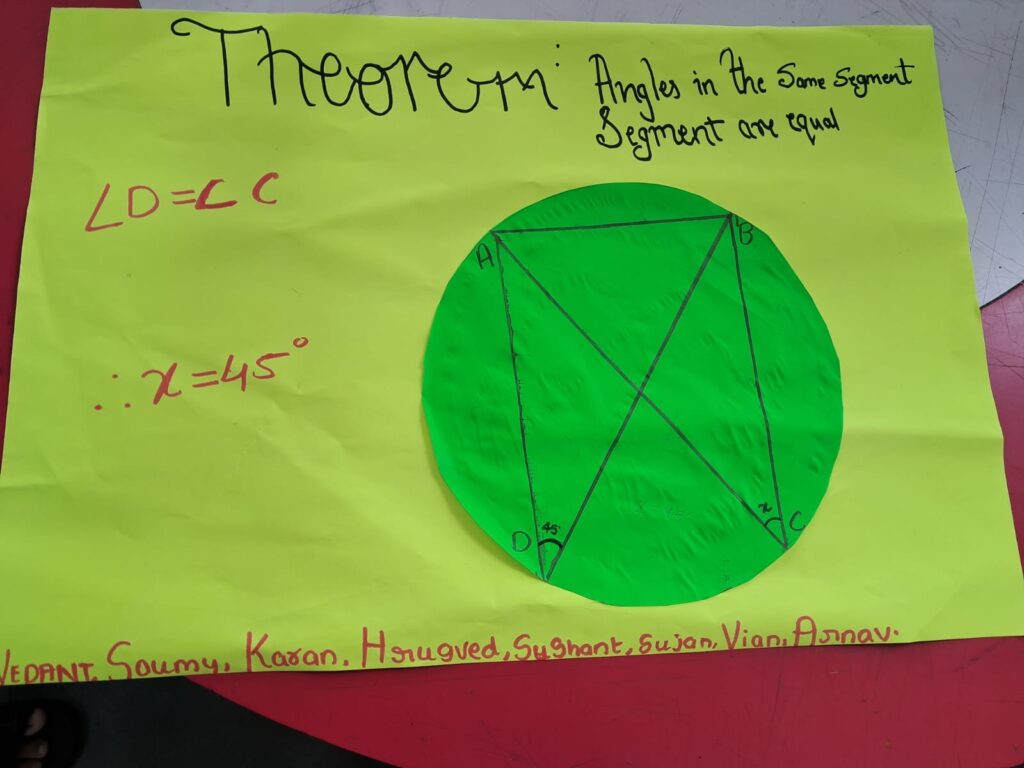 Theorem: Angles in the Same Segment
Segment are equal
∠D=∠C
∴ x=45°
A
B
D 45
x C
VEDANT, Soumy, Karan, Hrugved, Sushant, Sujan, Vian, Arnav.